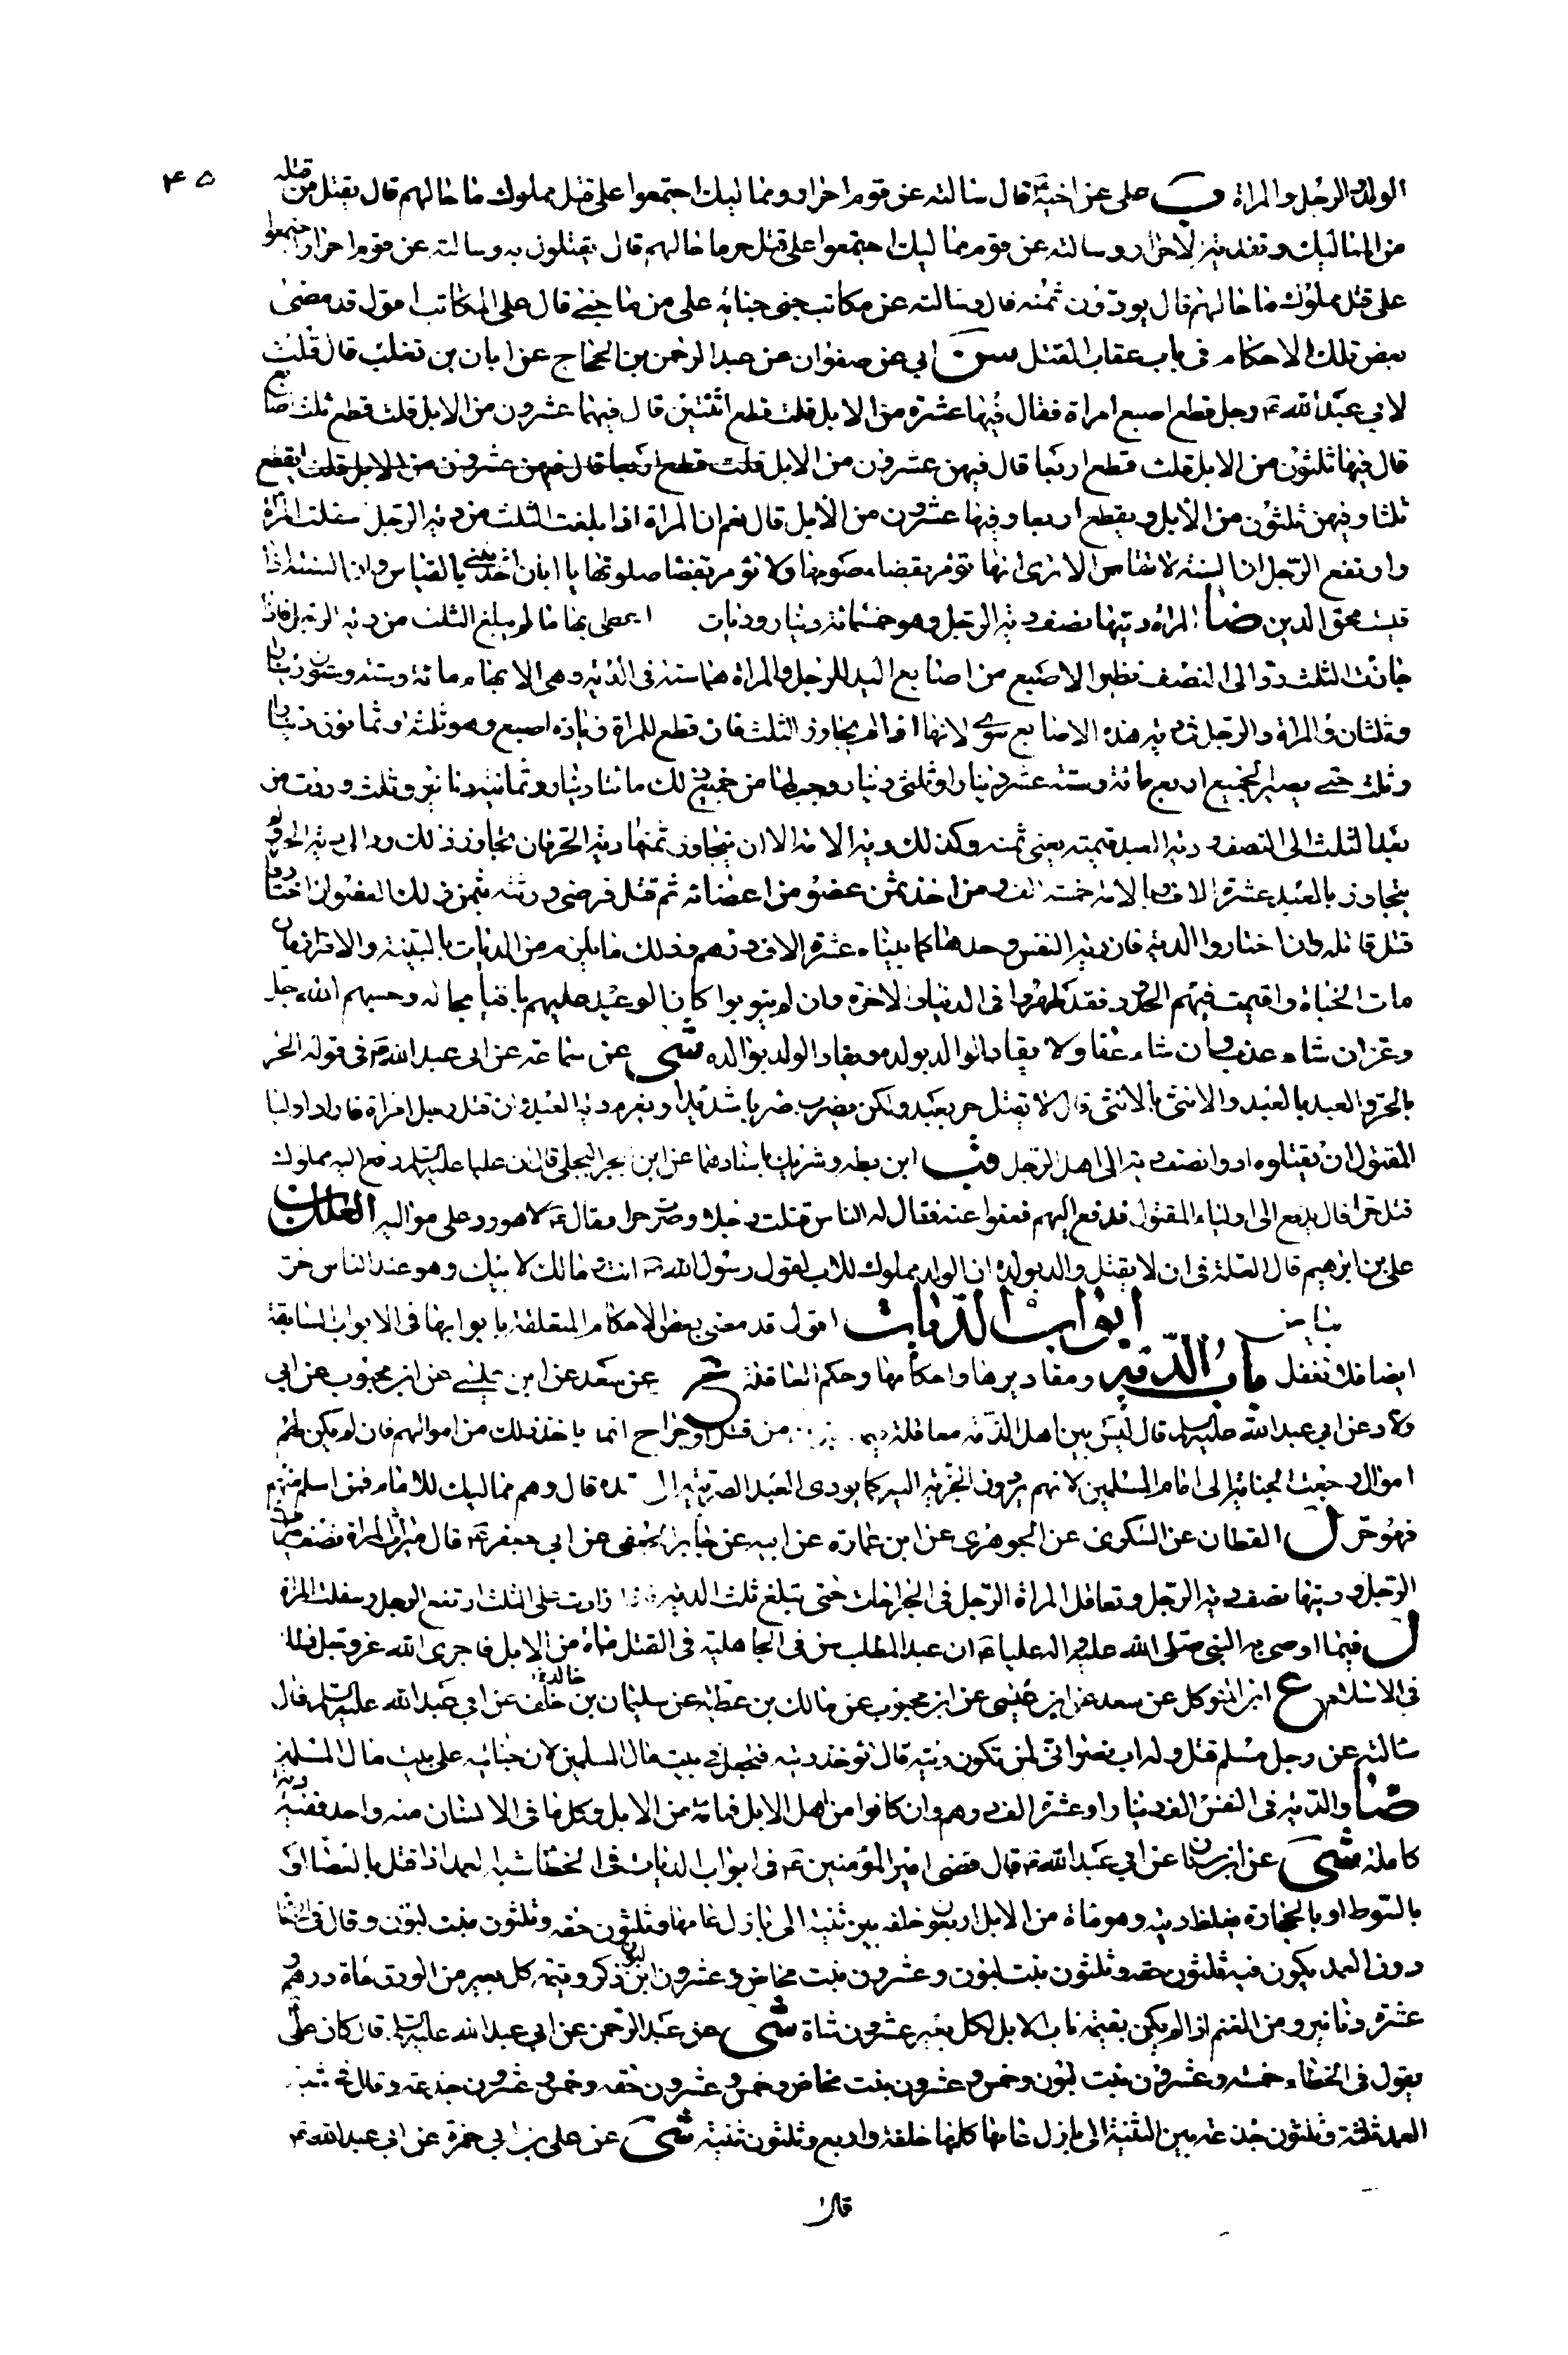 ۴۵
الولد والرجل والمراة ب على عن اخيه ع قال سالته عن قوم احرار ومماليك اجتمعوا على قتل مملوك ما حالهم قال يقتل من قتله
من المماليك وتفديه الاحرار وسالته عن قوم مماليك اجتمعوا على قتل حر ما حالهم قال يقتلون به وسالته عن قوم احرار اجتمعوا
على قتل مملوك ما حالهم قال يودّون ثمنه قال وسالته عن مكاتب جنى جناية على من ما جنى قال على المكاتب اقول قد مضى
بعض تلك الاحكام فى باب عقاب القتل سن ابي عن صفوان عن عبد الرحمن بن الحجاج عن ابان بن تغلب قال قلت
لابي عبد الله ع رجل قطع اصبع امراة فقال فيها عشرة من الابل قلت قطع اثنتين قال فيهما عشرون من الابل قلت قطع ثلث اصابع
قال فيها ثلثون من الابل قلت قطع اربعا قال فيهن عشرون من الابل قلت قطع اربعا قال فيهن عشرون من الابل قلت ايقطع
ثلثا وفيهن ثلثون من الابل ويقطع اربعا وفيها عشرون من الابل قال نعم ان المراة اذا بلغت الثلث من دية الرجل سفلت المراة
وارتفع الرجل ان السنة لا تقاس الا ترى انها تؤمر بقضاء صومها ولا تؤمر بقضا صلوتها يا ابان اخذتنى بالقياس وان السنة اذا
قيست محق الدين ضا المراة ديتها نصف دية الرجل وهو خمسمائة دينار وديات ما لم يبلغ الثلث من دية الرجل فاذا
جازت الثلث ردّ الى النصف نظير الاصبع من اصابع اليد للرجل والمراة هما سنة فى الدية وهى الابهام مائة وستة وستون دينارا
وثلثان والمراة والرجل فى دية هذه الاصابع سوى لانها اذا لم يجاوز الثلث فان قطع للمراة زيادة اصبع وهو ثلثة وثمانون دينارا
وثلث حتى يصير الجميع اربع مائة وستة عشر دينارا وثلثى دينار وجب لها من جميع ذلك مائتا دينار وثمانية دنانير وثلث وردت من
بعد الثلث الى النصف ودية العبد قيمته يعنى ثمنه وكذلك دية الامة الا ان يتجاوز ثمنها دية الحر فان تجاوز ذلك رد الى دية الحر ولم
يتجاوز بالعبد عشرة الاف وبالامة خمسة الف ومن اخذ ثمن عضو من اعضائه ثم قتل فرضى ورثته فى ذلك العضو ان اختاروا
قتل قاتله وان اختاروا الدية فان دية النفس وحدها كما بيناه عشرة الاف درهم وذلك ما يلزم من الديات بالبينة والاقرار فان
مات الجناة واقيمت فيهم الحدود فقد طهروا فى الدنيا والاخرة وان لم يتوبوا كان الوعيد عليهم باقيا بحاله وحسبهم الله جل
وعز ان شاء عذب وان شاء عفا ولا يقاد الوالد بولده ويقاد الولد بوالده شى عن سماعة عن ابي عبد الله ع فى قوله الحر
بالحر والعبد بالعبد والانثى بالانثى قال لا يقتل حر بعبد ولكن يضرب ضربا شديدا ويغرم دية العبد وان قتل رجل امراة فاراد اولياء
المقتول ان يقتلوه ادوا نصف ديته الى اهل الرجل قب ابن بطه وشريك باسنادهما عن ابن ابجر العجلي قال ان عليا عليه السلم رفع اليه مملوك
قتل حرا قال يدفع الى اولياء المقتول فدفع اليهم فعفوا عنه فقال له الناس قتلت رجلا وصرت حرا فقال ع لا هو ردّ على مواليه العلل
علي بن ابرهيم قال العلة فى ان لا يقتل والد بولده ان الولد مملوك للاب لقول رسول الله ص انت ومالك لابيك وهو عند الناس حر
ابواب الديات اقول قد مضى بعض الاحكام المتعلقة بابوابها فى الابواب السابقة
ايضا فلا تغفل باب الدية ومقاديرها واحكامها وحكم العاقلة عن سعد عن ابن عيسى عن ابن محبوب عن ابي
ولاد عن ابي عبد الله عليه السلم قال ليس بين اهل الذمة معاقلة من قتل او جراح انما ياخذ ذلك من اموالهم فان لم يكن لهم
اموال رجعت الجناية الى امام المسلمين لانهم يؤدون الجزية اليه كما يودى العبد الضريبة الى قال وهم مماليك للامام فمن اسلم منهم
فهو حر ل القطان عن السكري عن الجوهري عن ابن عمارة عن ابيه عن جابر الجعفي عن ابي جعفر ع قال ميراث المراة نصف ميراث
الرجل وديتها نصف دية الرجل وتعاقل المراة الرجل فى الجراحات حتى تبلغ ثلث الدية فاذا زادت على الثلث ارتفع الرجل وسفلت المراة
ل فيما اوصى به النبي صلى الله عليه واله عليا ع ان عبد المطلب سن فى الجاهلية فى القتل مائة من الابل فاجرى الله عز وجل ذلك
فى الاسلام ع ابن المتوكل عن سعد عن ابن عيسى عن ابن محبوب عن مالك بن عطية عن سليمان بن خلف عن ابي عبد الله عليه السلم قال
سالته عن رجل مسلم قتل وله اب نصرانى لمن تكون ديته قال تؤخذ ديته فتجعل فى بيت مال المسلمين لان جنايته على بيت مال المسلمين
ضا والدية فى النفس الف دينار او عشرة الف درهم وان كانوا من اهل الابل فمائة من الابل وكل ما فى الانسان منه واحد ففيه دية
كاملة شى عن ابن سنان عن ابي عبد الله ع قال قضى امير المؤمنين ع فى ابواب الديات فى الخطا شبه العمد اذا قتل بالعصا او
بالسوط او بالحجارة يغلظ ديته وهو مائة من الابل اربعون خلفة بين ثنية الى بازل عامها وثلثون حقة وثلثون بنت لبون وقال فى الخطا
دون العمد يكون فيه ثلثون حقة وثلثون بنت لبون وعشرون بنت مخاض وعشرون ابن لبون ذكر وقيمة كل بعير من الورق مائة درهم و
عشرة دنانير ومن الغنم اذا لم يكن بقيمة ناب الابل لكل بعير عشرون شاة شى عن عبد الرحمن عن ابي عبد الله عليه السلم قال كان على
يقول فى الخطاء خمسة وعشرون بنت لبون وخمس وعشرون بنت مخاض وخمس وعشرون حقة وخمس وعشرون جذعة وقال فى شبه
العمد ثلثة وثلثون جذعة بين الثنية الى بازل عامها كلها خلفة واربع وثلثون ثنية شى عن علي بن ابي حمزة عن ابي عبد الله ع
قال